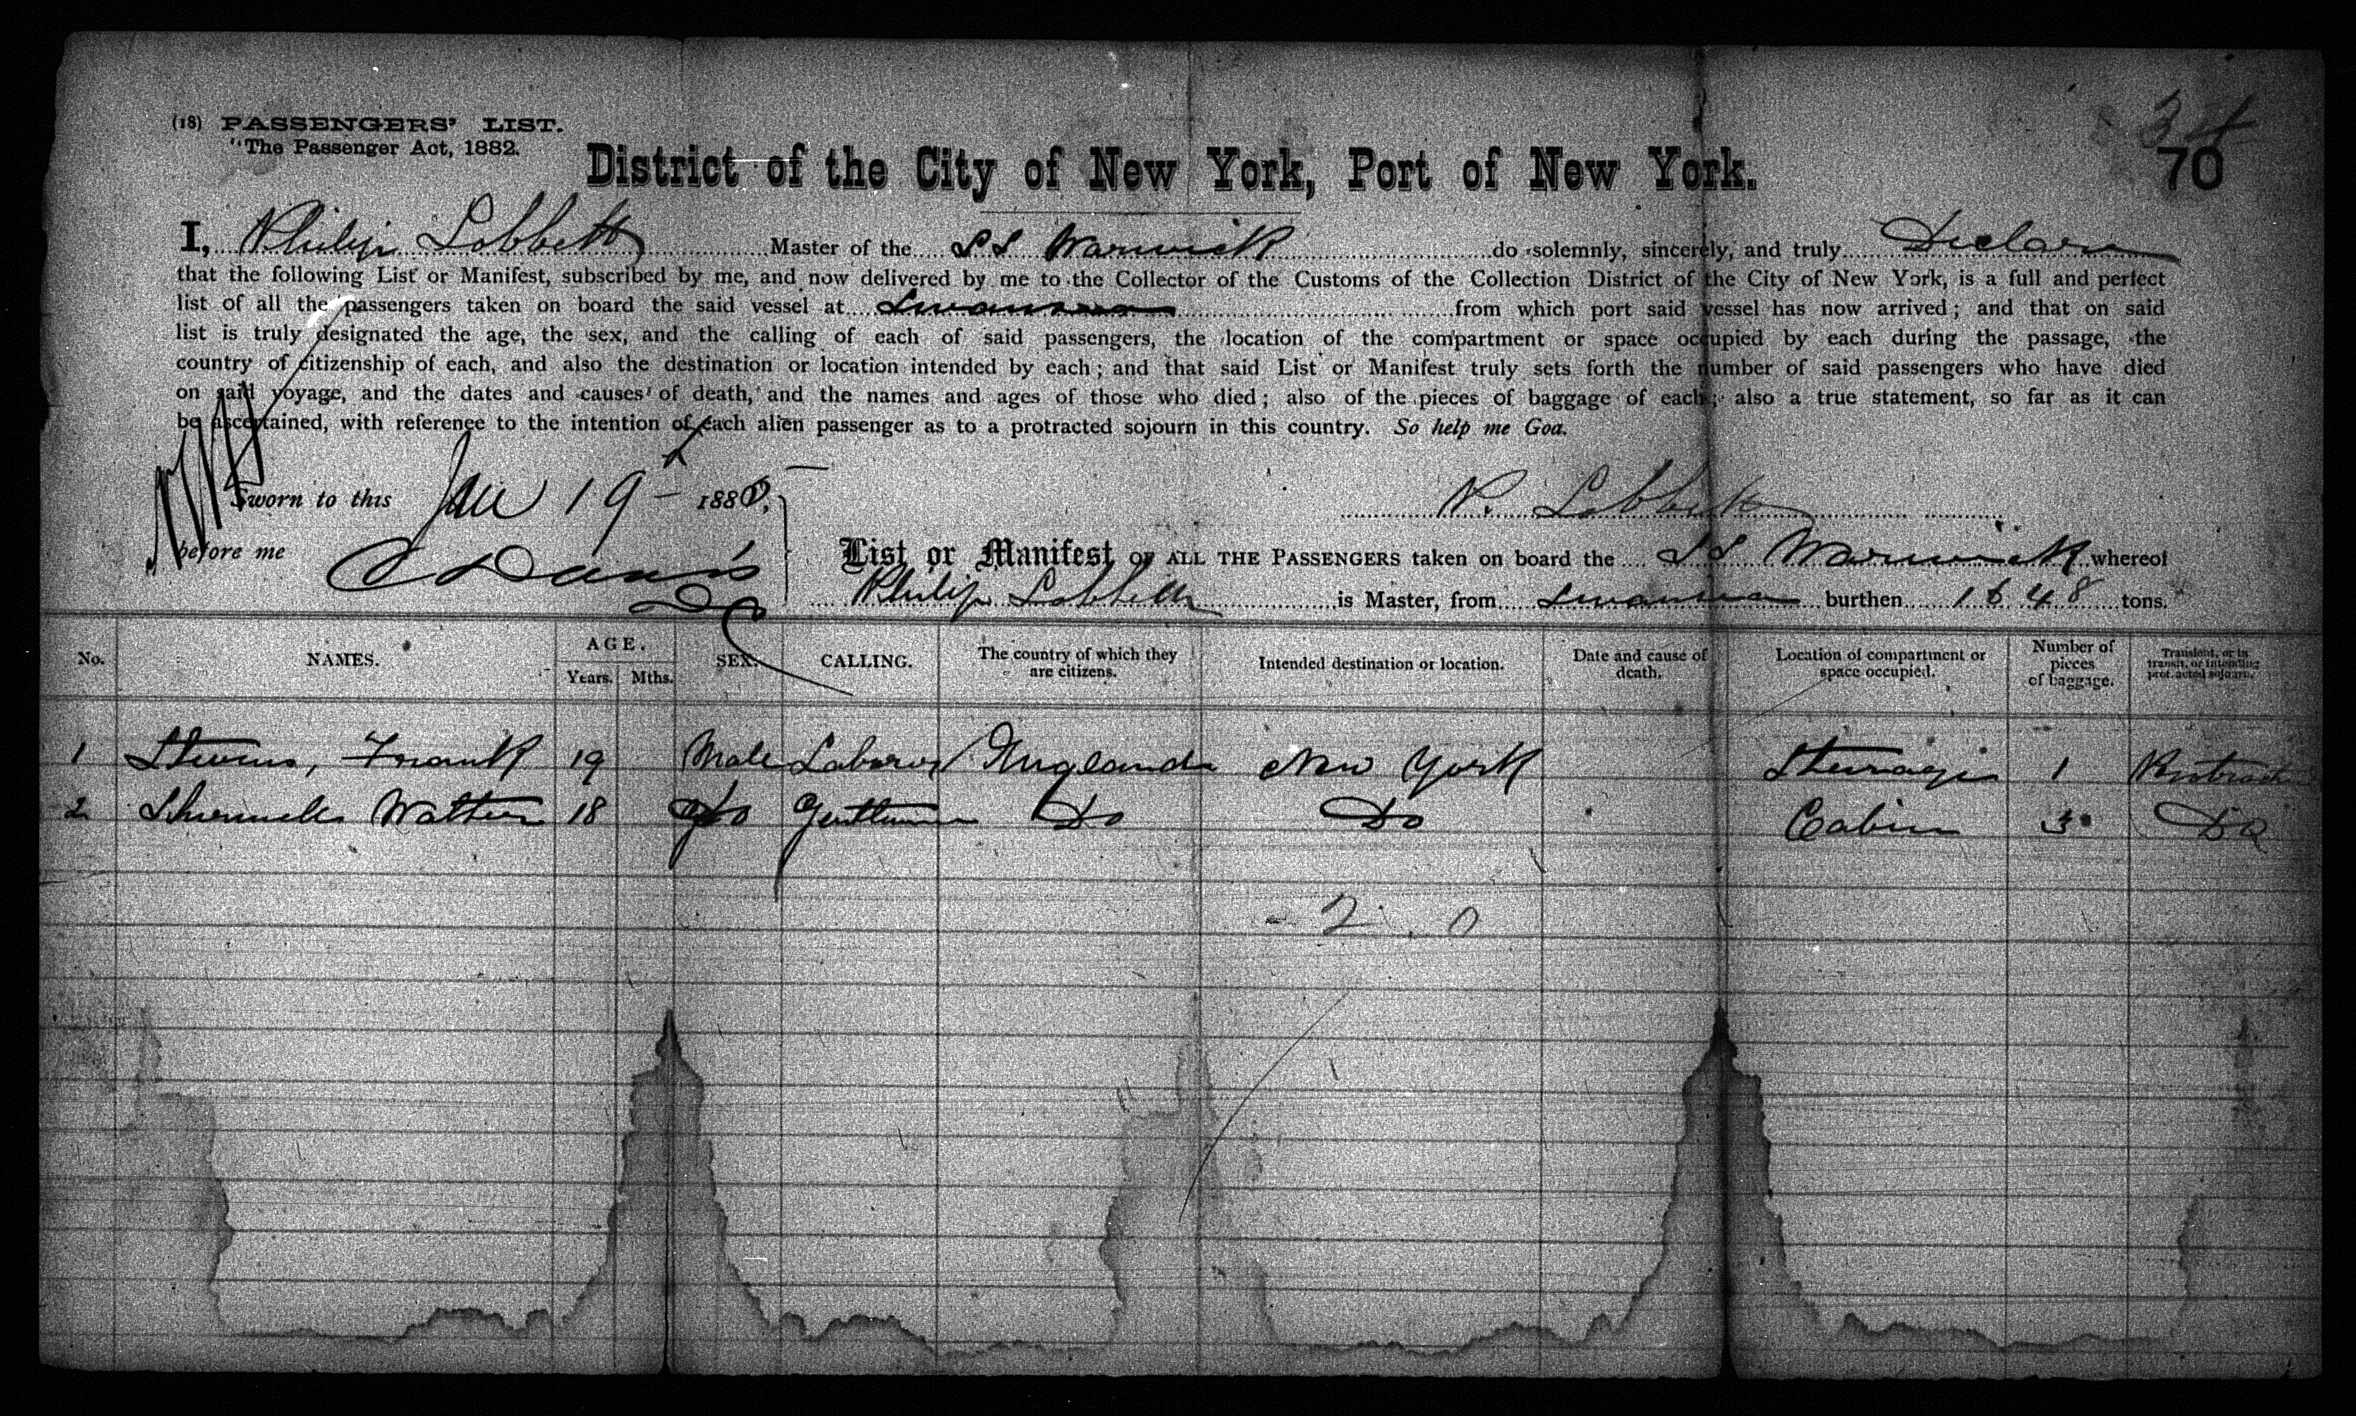 34
(18) PASSENGERS' LIST.
"The Passenger Act, 1882.
District of the City of New York, Port of New York.
70
I, Philip Lobbett Master of the SS Warwick do solemnly, sincerely, and truly Declare
that the following List or Manifest, subscribed by me, and now delivered by me to the Collector of the Customs of the Collection District of the City of New York, is a full and perfect
list of all the passengers taken on board the said vessel at Swansea from which port said vessel has now arrived; and that on said
list is truly designated the age, the sex, and the calling of each of said passengers, the location of the compartment or space occupied by each during the passage, the
country of citizenship of each, and also the destination or location intended by each; and that said List or Manifest truly sets forth the number of said passengers who have died
on said voyage, and the dates and causes of death, and the names and ages of those who died; also of the pieces of baggage of each; also a true statement, so far as it can
be ascertained, with reference to the intention of each alien passenger as to a protracted sojourn in this country. So help me God.
Sworn to this Jan 19 1888,
P. Lobbett
before me C Davis
List or Manifest OF ALL THE PASSENGERS taken on board the SS Warwick whereof
Philip Lobbett is Master, from Swansea burthen 1648 tons.
No. NAMES. AGE. Years. Mths. SEX. CALLING. The country of which they are citizens. Intended destination or location. Date and cause of death. Location of compartment or space occupied. Number of pieces of baggage. Transient, or in transit, or intending protracted sojourn.
1 Stevens, Frank 19 Male Laborer England New York Steerage 1 Protract
2 Walter 18 Do Gentleman Do Do Cabin 3 Do
- 2 . 0